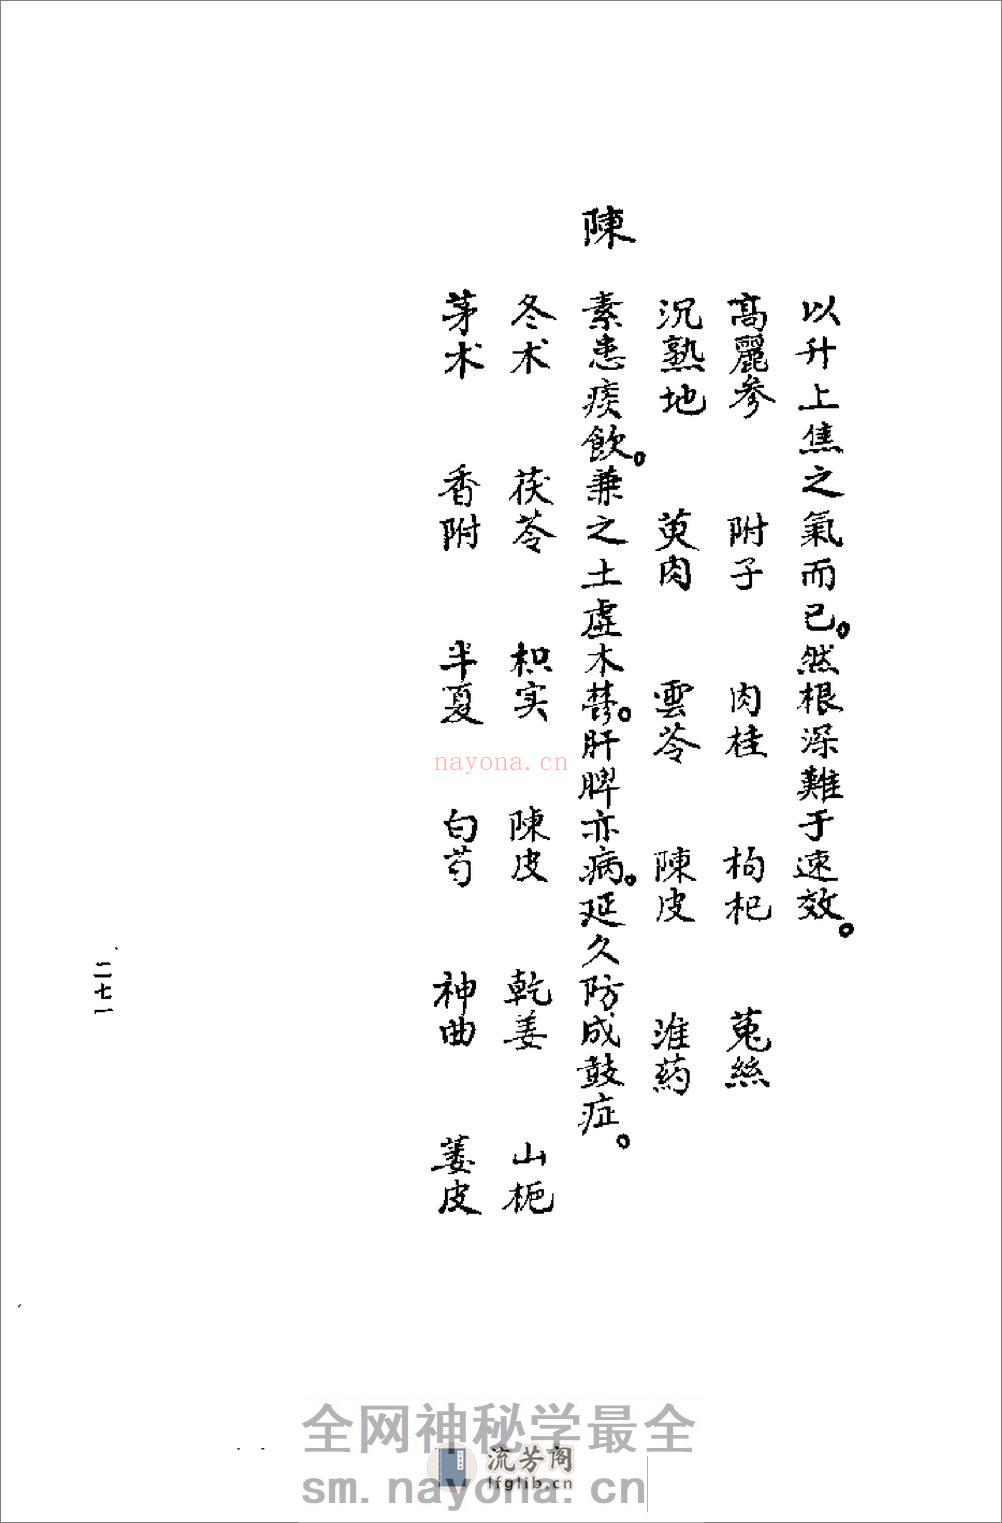 以升上焦之氣而已。然根深難于速效。
高麗參 附子 肉桂 枸杞 菟絲
沉熟地 萸肉 雲苓 陳皮 淮药
陳 素患痰飲。兼之土虛木鬱。肝脾亦病。延久防成鼓症。
冬术 茯苓 枳实 陳皮 乾姜 山栀
茅术 香附 半夏 白芍 神曲 蒌皮
二七一
nayona.cn
全网神秘学最全
流芳阁
lfglib.cn
sm.nayona.cn